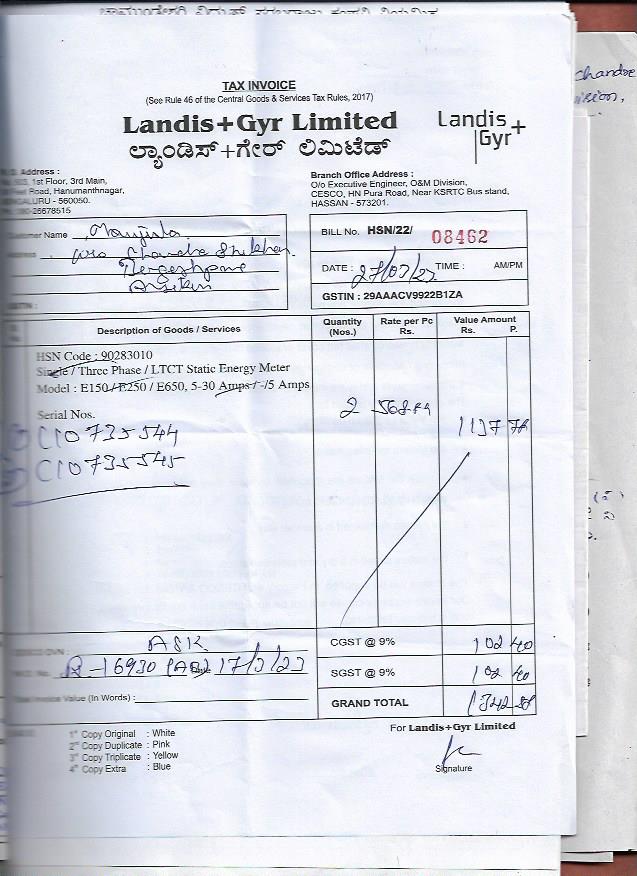 TAX INVOICE
(See Rule 46 of the Central Goods & Services Tax Rules, 2017)
Landis+Gyr Limited
ಲ್ಯಾಂಡಿಸ್+ಗೇರ್ ಲಿಮಿಟೆಡ್
Landis+
Gyr
Address :
1st Floor, 3rd Main,
Road, Hanumanthnagar,
- 560050.
26678515
Branch Office Address :
O/o Executive Engineer, O&M Division,
CESCO, HN Pura Road, Near KSRTC Bus stand,
HASSAN - 573201.
Customer Name Manjula
W/o Chandra Shekhar
BILL No. HSN/22/ 08462
DATE : 27/03/23 TIME : AM/PM
GSTIN : 29AAACV9922B1ZA
Description of Goods / Services
Quantity (Nos.)
Rate per Pc Rs.
Value Amount Rs. P.
HSN Code : 90283010
Single / Three Phase / LTCT Static Energy Meter
Model : E150 / E250 / E650, 5-30 Amps / -/5 Amps
Serial Nos.
2 568.89 1137 78
C10735544
C10735545
ASK
R-16930 17/3/23
CGST @ 9% 102 40
SGST @ 9% 102 40
Invoice Value (In Words) :
GRAND TOTAL 1342 58
1st Copy Original : White
2nd Copy Duplicate : Pink
3rd Copy Triplicate : Yellow
4th Copy Extra : Blue
For Landis+Gyr Limited
Signature